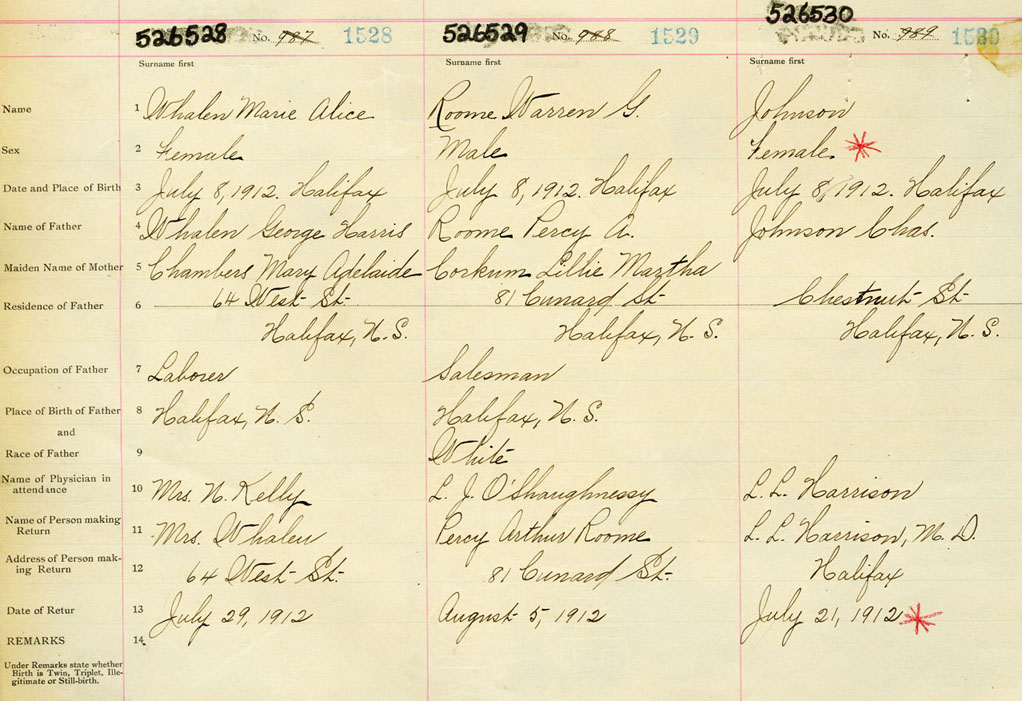 526528 No. 987 1528 526529 No. 988 1529 526530 No. 989 1530
Surname first Surname first Surname first
Name 1 Whalen Marie Alice Roome Warren G. Johnson
Sex 2 Female Male Female
Date and Place of Birth 3 July 8, 1912. Halifax July 8, 1912. Halifax July 8, 1912. Halifax
Name of Father 4 Whalen George Harris Roome Percy A. Johnson Chas.
Maiden Name of Mother 5 Chambers Mary Adelaide Corkum Lillie Martha
Residence of Father 6 64 West St. 81 Cunard St. Chestnut St.
Halifax, N.S. Halifax, N.S. Halifax, N.S.
Occupation of Father 7 Laborer Salesman
Place of Birth of Father 8 Halifax, N.S. Halifax, N.S.
and
Race of Father 9 White
Name of Physician in
attendance 10 Mrs. N. Kelly L. J. O'Shaughnessy L. L. Harrison
Name of Person making
Return 11 Mrs. Whalen Percy Arthur Roome L. L. Harrison, M.D.
Address of Person mak-
ing Return 12 64 West St. 81 Cunard St. Halifax
Date of Retur 13 July 29, 1912 August 5, 1912 July 21, 1912
REMARKS 14
Under Remarks state whether
Birth is Twin, Triplet, Ille-
gitimate or Still-birth.